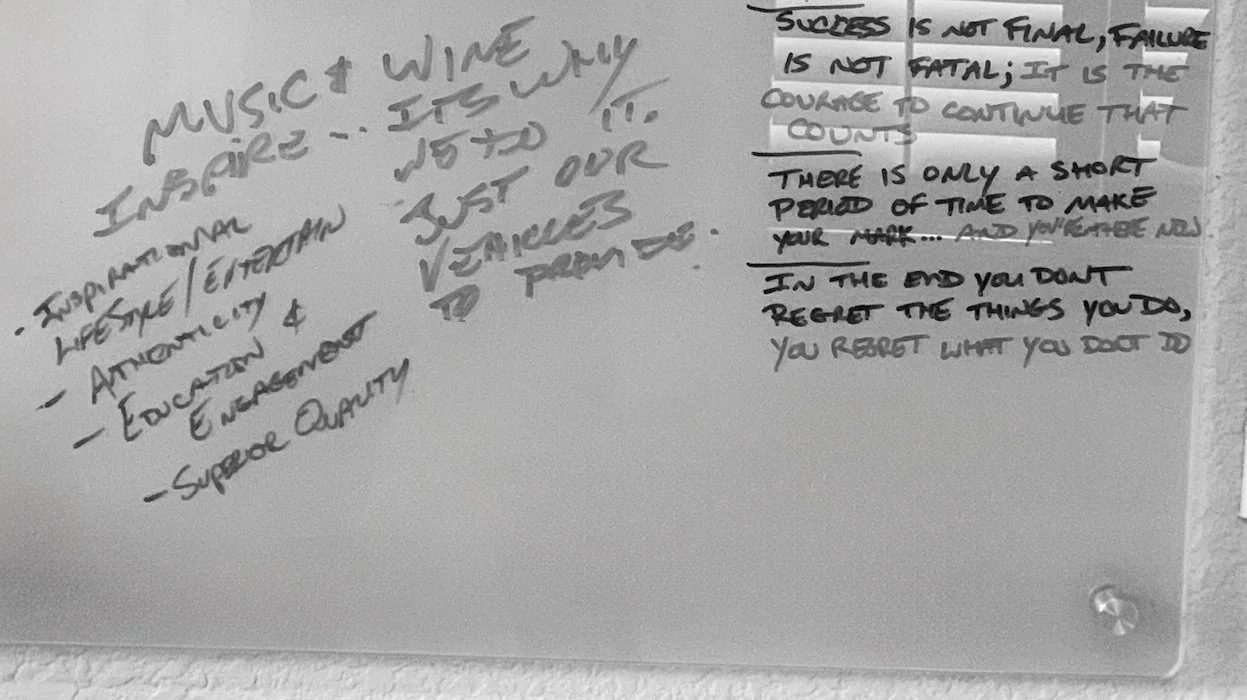 MUSIC & WINE
INSPIRE... ITS WHY
WE DO IT.
JUST OUR
VEHICLES
TO PROVIDE.
- INSPIRATIONAL
LIFESTYLE/ENTERTAIN
- AUTHENTICITY
- EDUCATION &
ENGAGEMENT
- SUPERIOR QUALITY
SUCCESS IS NOT FINAL, FAILURE
IS NOT FATAL; IT IS THE
COURAGE TO CONTINUE THAT
COUNTS
THERE IS ONLY A SHORT
PERIOD OF TIME TO MAKE
YOUR MARK... AND YOU'RE THERE NOW.
IN THE END YOU DONT
REGRET THE THINGS YOU DO,
YOU REGRET WHAT YOU DONT DO